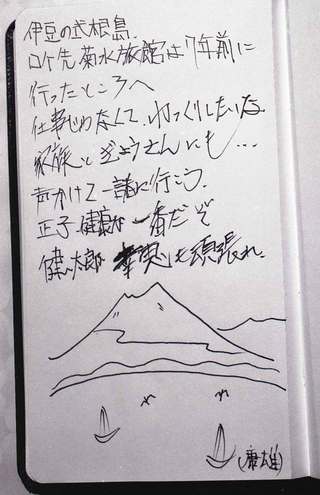 伊豆の式根島
ロケ先 菊水旅館は7年前に
行ったところへ
仕事じゃなくて、ゆっくりしたいな
家族とぎょうさんにも…
声かけて一諸に行こう。
正子 健康が一番だぞ
健太郎 も頑張れ。
(康雄)